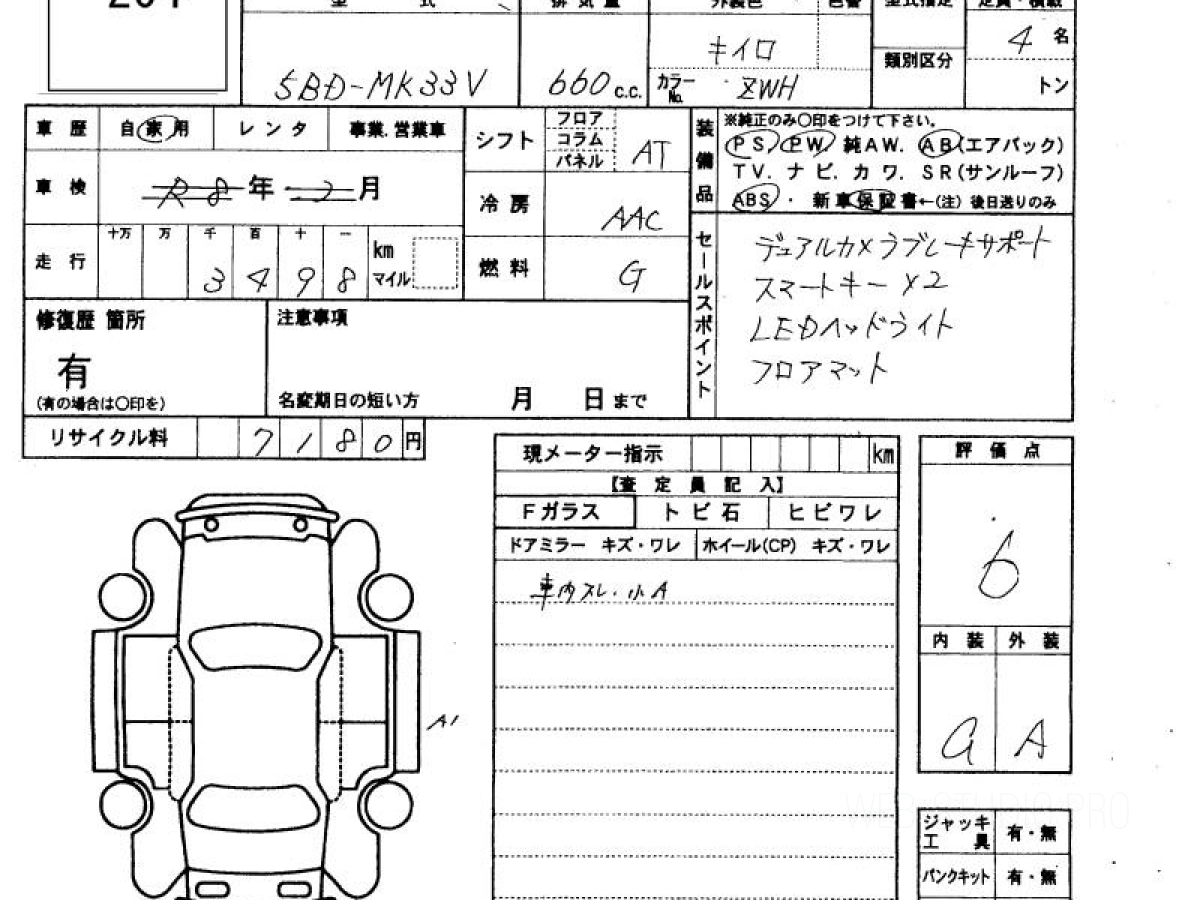 型 式
排 気 量
外装色
色番
型式指定
定員・積載
5BD-MK33V
660 c.c.
キイロ
カラーNo. ZWH
類別区分
4 名
トン
車 歴 自家用 レ ン タ 事業.営業車
車 検 R8年 2月
走 行 十万 万 千 百 十 一
3 4 9 8 km マイル
シフト フロア コラム パネル AT
冷 房 AAC
燃 料 G
装備品
※純正のみ〇印をつけて下さい。
PS/ PW/ 純AW. AB(エアバック)
TV. ナ ビ. カ ワ. SR(サンルーフ)
ABS ・ 新車保証書←(注) 後日送りのみ
セールスポイント
デュアルカメラブレーキサポート
スマートキー×2
LEDヘッドライト
フロアマット
修復歴 箇所
有
(有の場合は〇印を)
注意事項
名変期日の短い方 月 日まで
リサイクル料 7 1 8 0 円
現メーター指示 km
【査 定 員 記 入】
Fガラス ト ビ 石 ヒ ビ ワ レ
ドアミラー キズ・ワレ ホイール(CP) キズ・ワレ
車内スレ・小A
A1
評 価 点
6
内 装 外 装
A
ジャッキ工 具 有・無
パンクキット 有・無
WEB STUDIO PRO